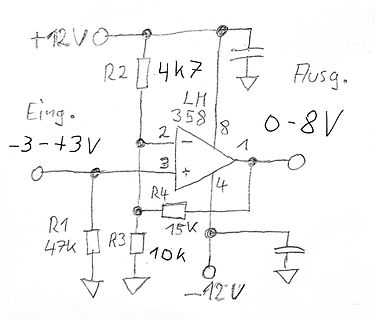 +12V
R2 4k7
Ausg.
LM
358
Eing.
0-8V
-3-+3V
2
-
8
1
3
+
R4
4
15K
R1
47K
R3
10k
-12V